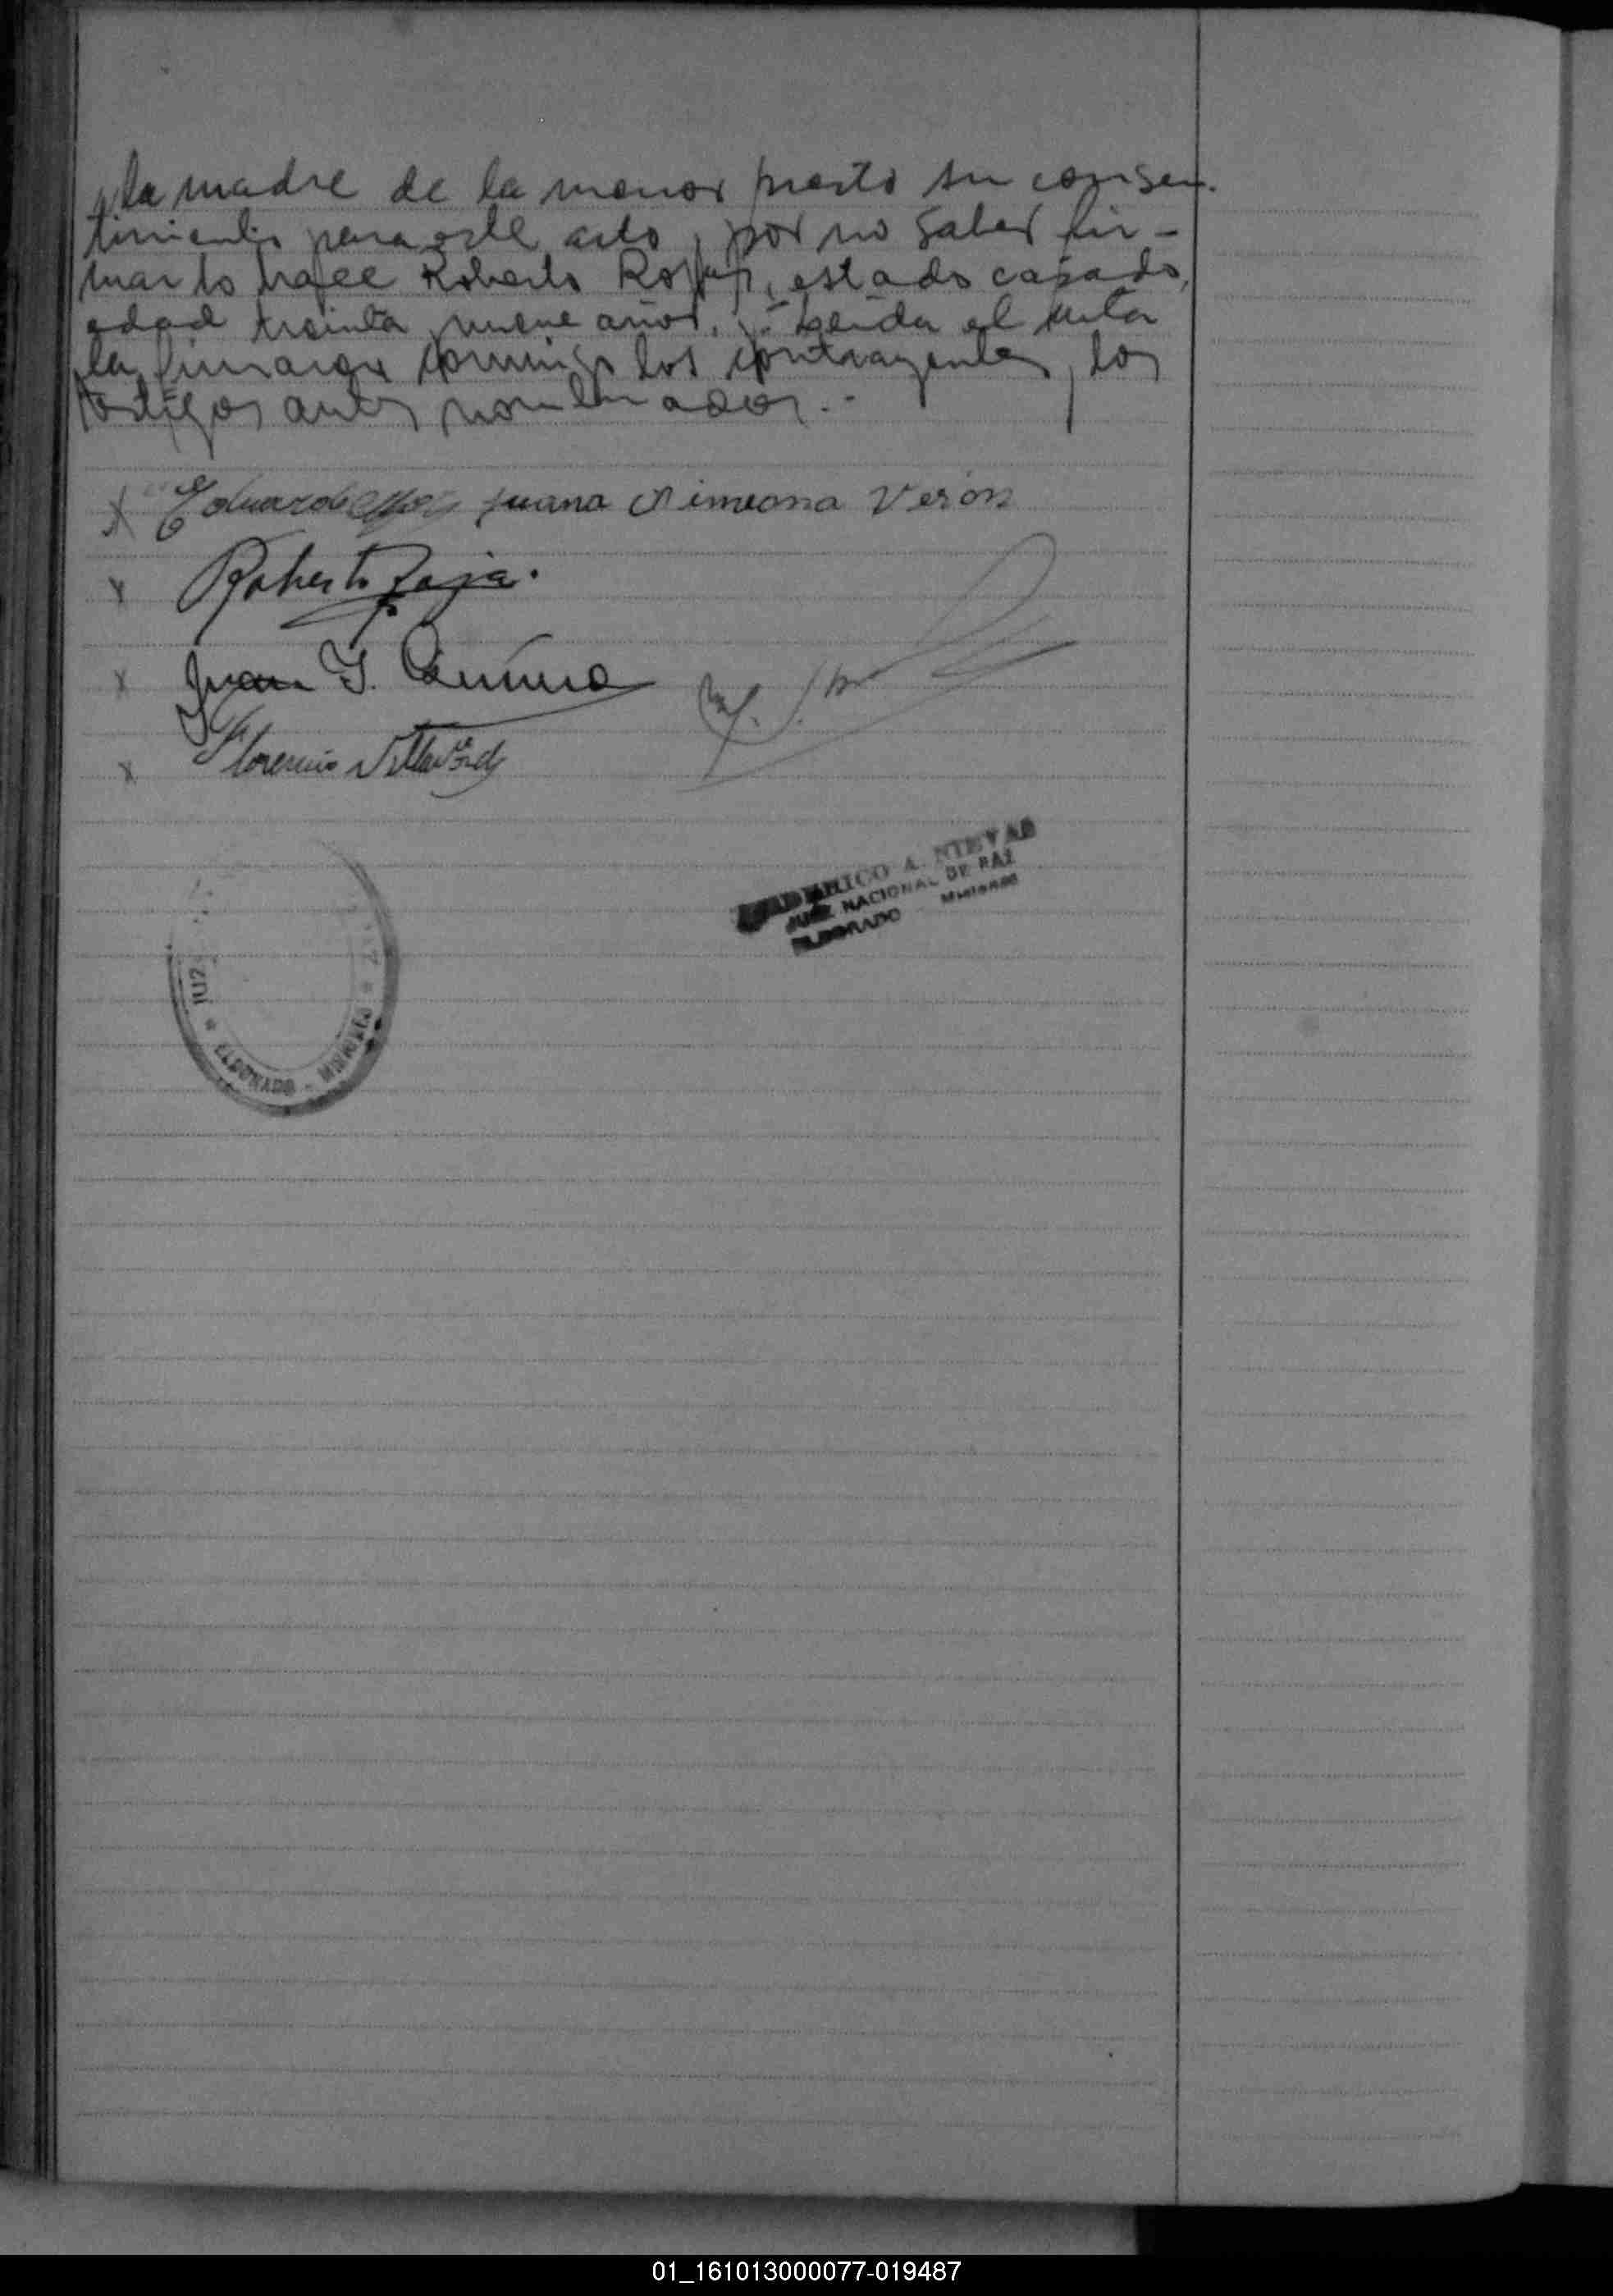 la madre de la menor presto su consen-
timiento para este acto, por no saber fir-
mar lo hace Roberto estado casado,
edad treinta nueve años. Leida el acta
la firmaron conmigo los contrayentes, los
testigos antes nombrados.-
Eduardo Juana Simeona Verón
Roberto
Juan
Florencio
FEDERICO A. NIEVAS
JUEZ NACIONAL DE PAZ
ELDORADO Misiones
JUZ * ELDORADO - MISIONES *
01_161013000077-019487